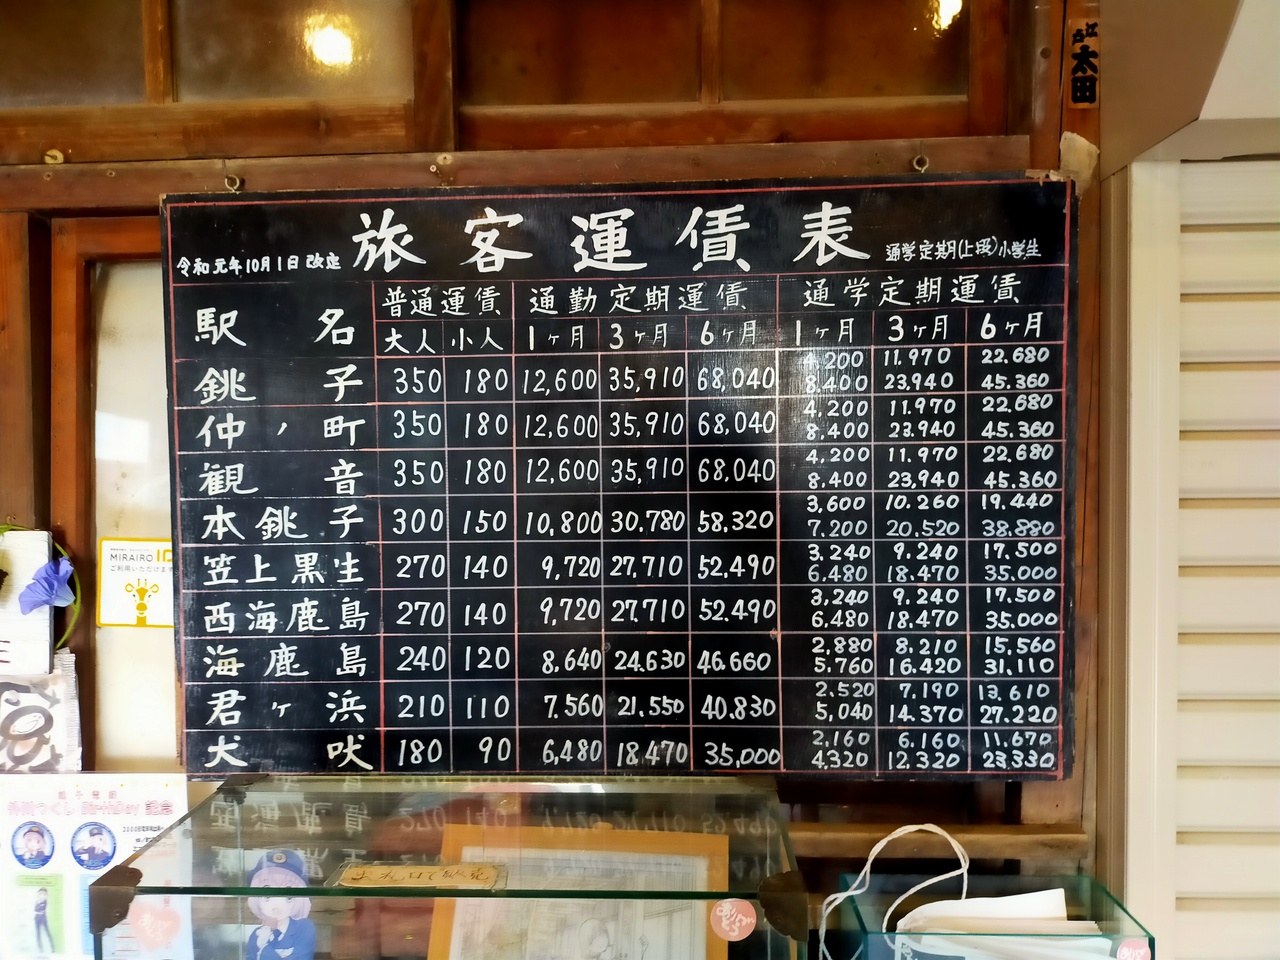 古江
太田
令和元年10月1日改定 旅客運賃表 通学定期(上段)小学生
駅名 普通運賃 通勤定期運賃 通学定期運賃
大人 小人 1ヶ月 3ヶ月 6ヶ月 1ヶ月 3ヶ月 6ヶ月
4.200 11.970 22.680
銚子 350 180 12,600 35,910 68,040 8.400 23.940 45.360
4.200 11.970 22.680
仲ノ町 350 180 12,600 35,910 68,040 8.400 23.940 45.360
4.200 11.970 22.680
観音 350 180 12,600 35,910 68,040 8.400 23.940 45.360
3,600 10.260 19.440
本銚子 300 150 10,800 30.780 58.320 7.200 20.520 38.880
3.240 9.240 17.500
笠上黒生 270 140 9,720 27.710 52.490 6.480 18.470 35.000
3,240 9.240 17.500
西海鹿島 270 140 9,720 27.710 52.490 6.480 18.470 35.000
2,880 8.210 15.560
海鹿島 240 120 8.640 24.630 46.660 5.760 16.420 31.110
2.520 7.190 13.610
君ヶ浜 210 110 7.560 21.550 40.830 5,040 14.370 27.220
2.160 6.160 11.670
犬吠 180 90 6,480 18.470 35,000 4,320 12.320 23.330
MIRAIRO ID
ご利用いただけます
外川つくし BirthDay 記念
ありがとう
ありがとう